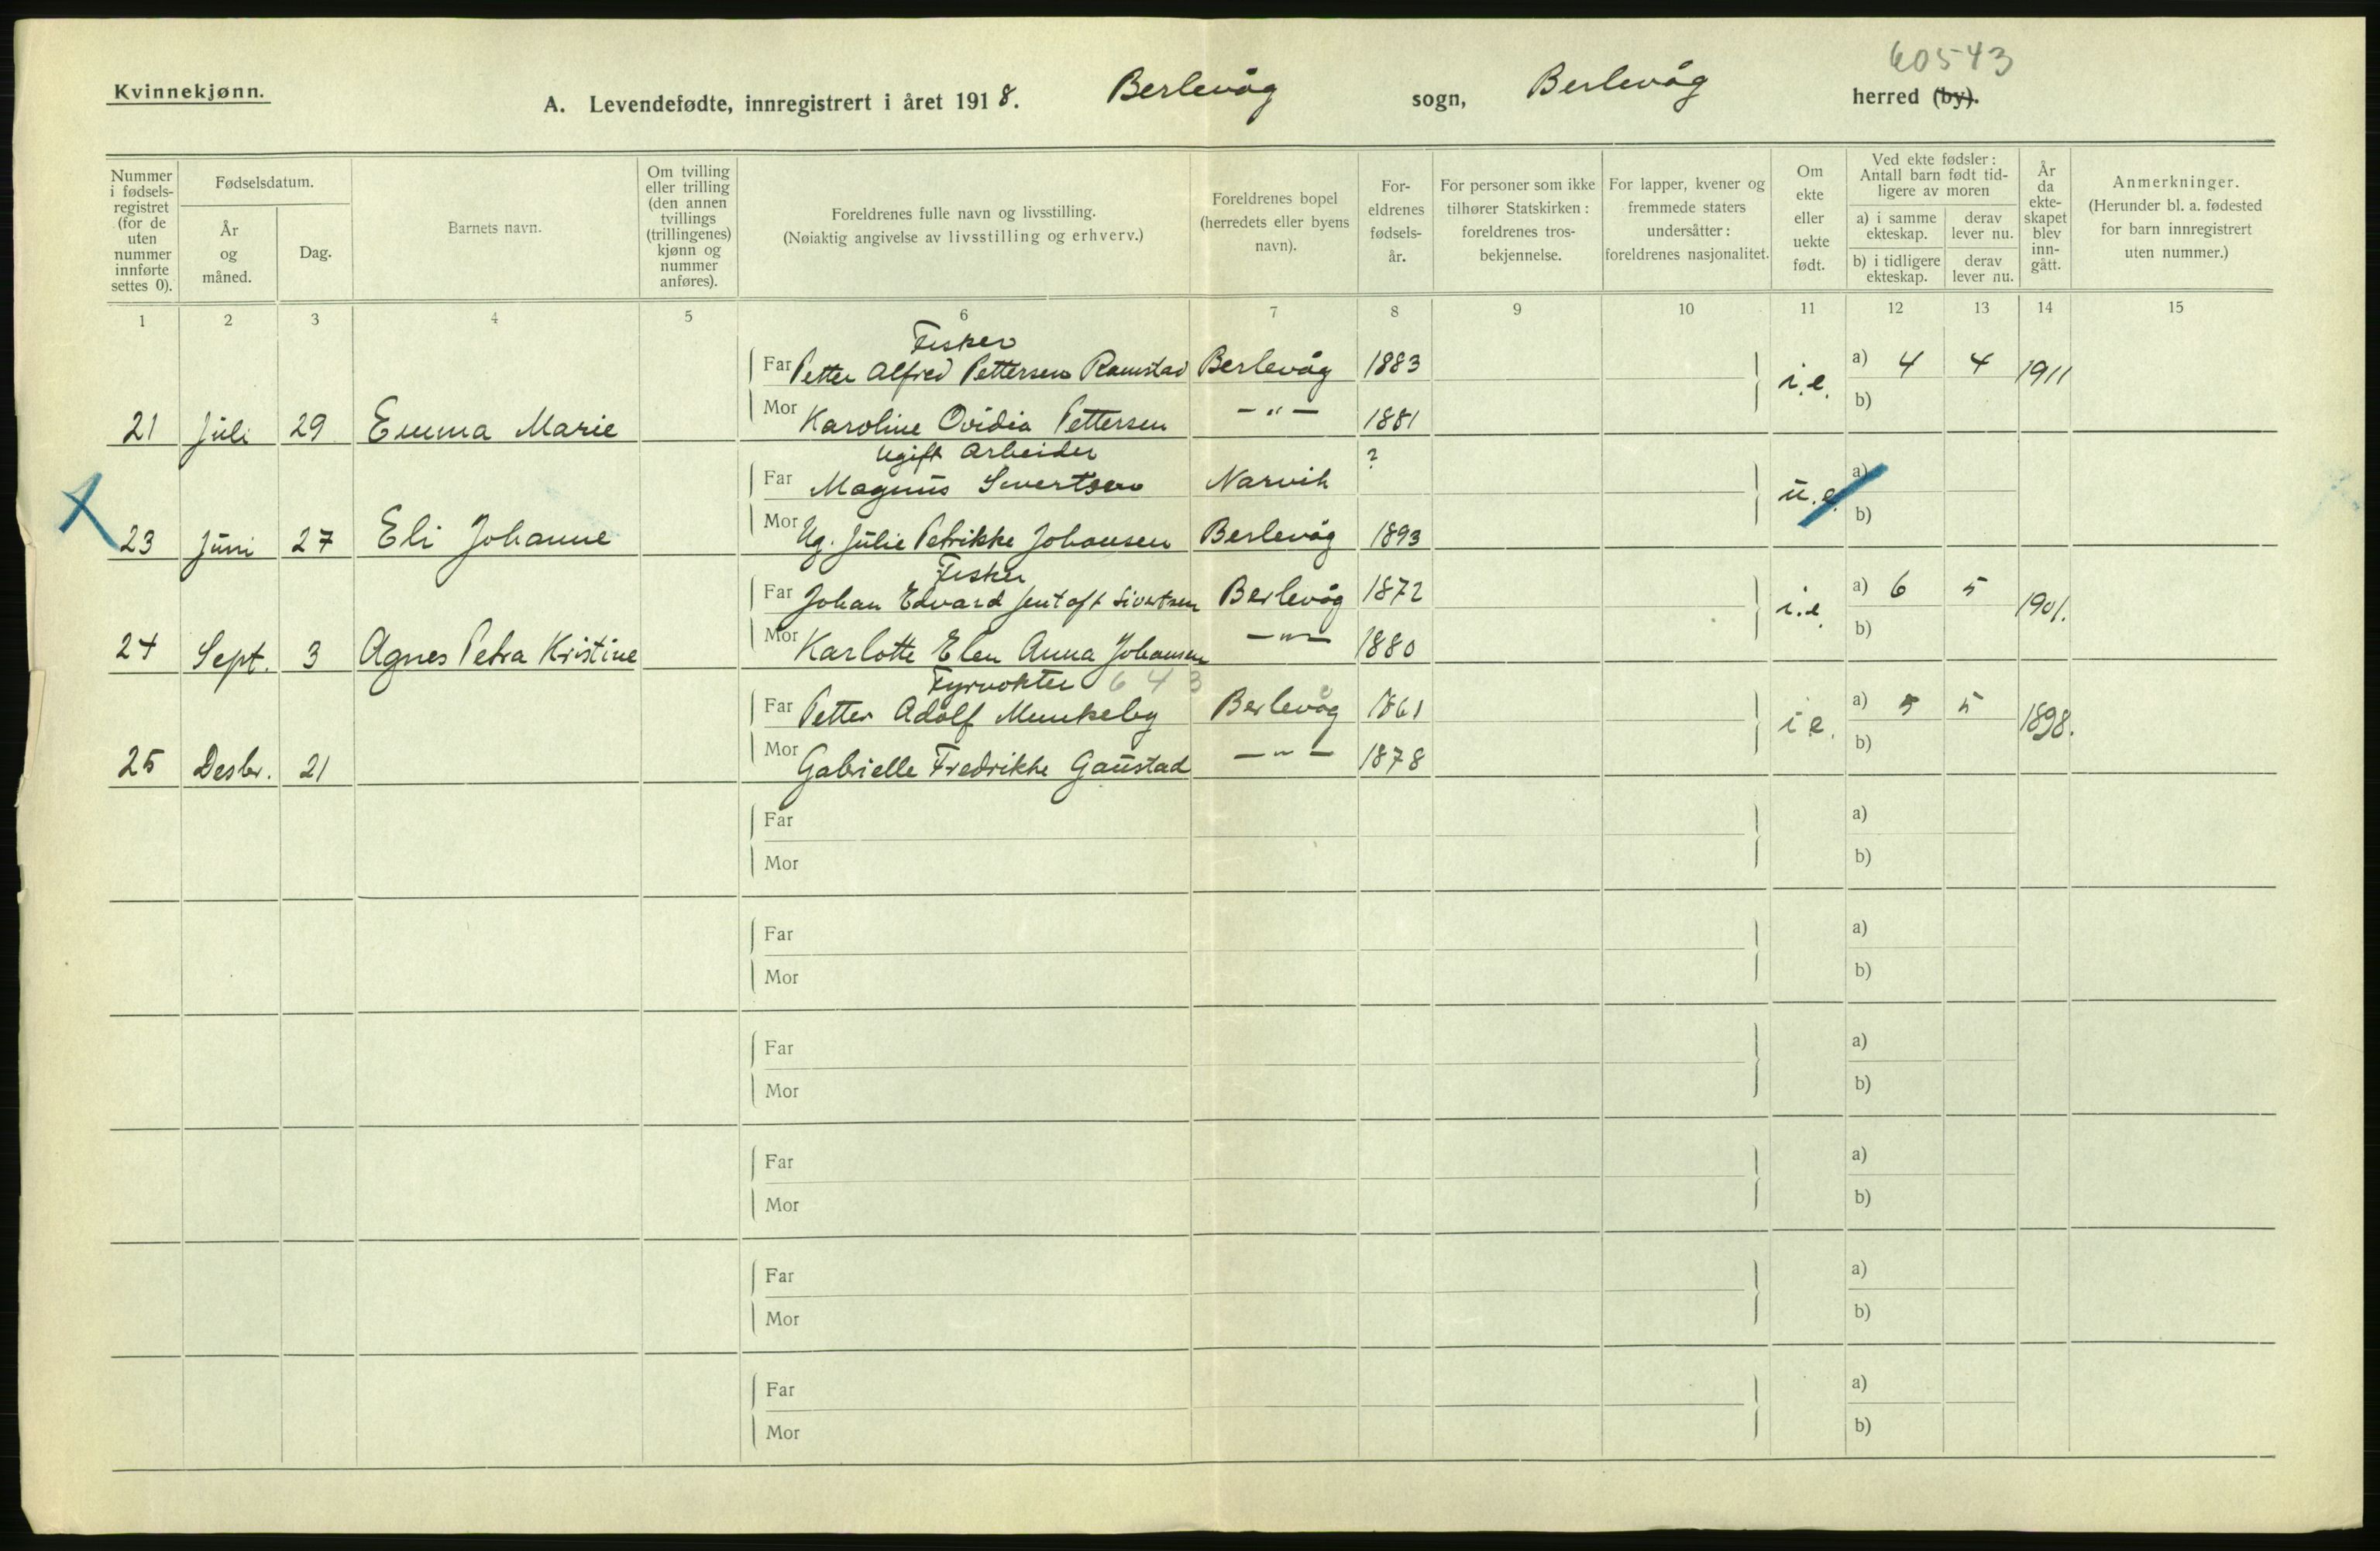 60543
Kvinnekjønn.
A. Levendefødte, innregistrert i året 1918. Berlevåg sogn, Berlevåg herred (by).
Nummer i fødsels- registret (for de uten nummer innførte settes 0).
Fødselsdatum.
År og måned.
Dag.
Barnets navn.
Om tvilling eller trilling (den annen tvillings (trillingenes) kjønn og nummer anføres).
Foreldrenes fulle navn og livsstilling.
(Nøiaktig angivelse av livsstilling og erhverv.)
Foreldrenes bopel (herredets eller byens navn).
For- eldrenes fødsels- år.
For personer som ikke tilhører Statskirken: foreldrenes tros- bekjennelse.
For lapper, kvener og fremmede staters undersåtter: foreldrenes nasjonalitet.
Om ekte eller uekte født.
Ved ekte fødsler:
Antall barn født tid- ligere av moren
a) i samme ekteskap.
derav lever nu.
b) i tidligere ekteskap.
derav lever nu.
År da ekte- skapet blev inn- gått.
Anmerkninger.
(Herunder bl. a. fødested for barn innregistrert uten nummer.)
1 2 3 4 5 6 7 8 9 10 11 12 13 14 15
Fisker
Far Petter Alfred Pettersen Ramstad Berlevåg 1883 i.e. a) 4 4 1911
21 Juli 29 Emma Marie Mor Karoline Ovidia Pettersen — " — 1881 b)
Ugift Arbeider
Far Magnus Sivertsen Narvik ? u.e. a)
X 23 Juni 27 Eli Johanne Mor Ug. Julie Petrikke Johansen Berlevåg 1893 b)
Fisker
Far Johan Edvard Jentoft Sivertsen Berlevåg 1872 i.e. a) 6 5 1901.
24 Sept. 3 Agnes Petra Kristine Mor Karlotte Elen Anna Johansen — " — 1880 b)
Fyrvokter 643
Far Petter Adolf Munkeby Berlevåg 1861 i e. a) 5 5 1898.
25 Desbr. 21 Mor Gabrielle Fredrikke Gaustad — " — 1878 b)
Far a)
Mor b)
Far a)
Mor b)
Far a)
Mor b)
Far a)
Mor b)
Far a)
Mor b)
Far a)
Mor b)